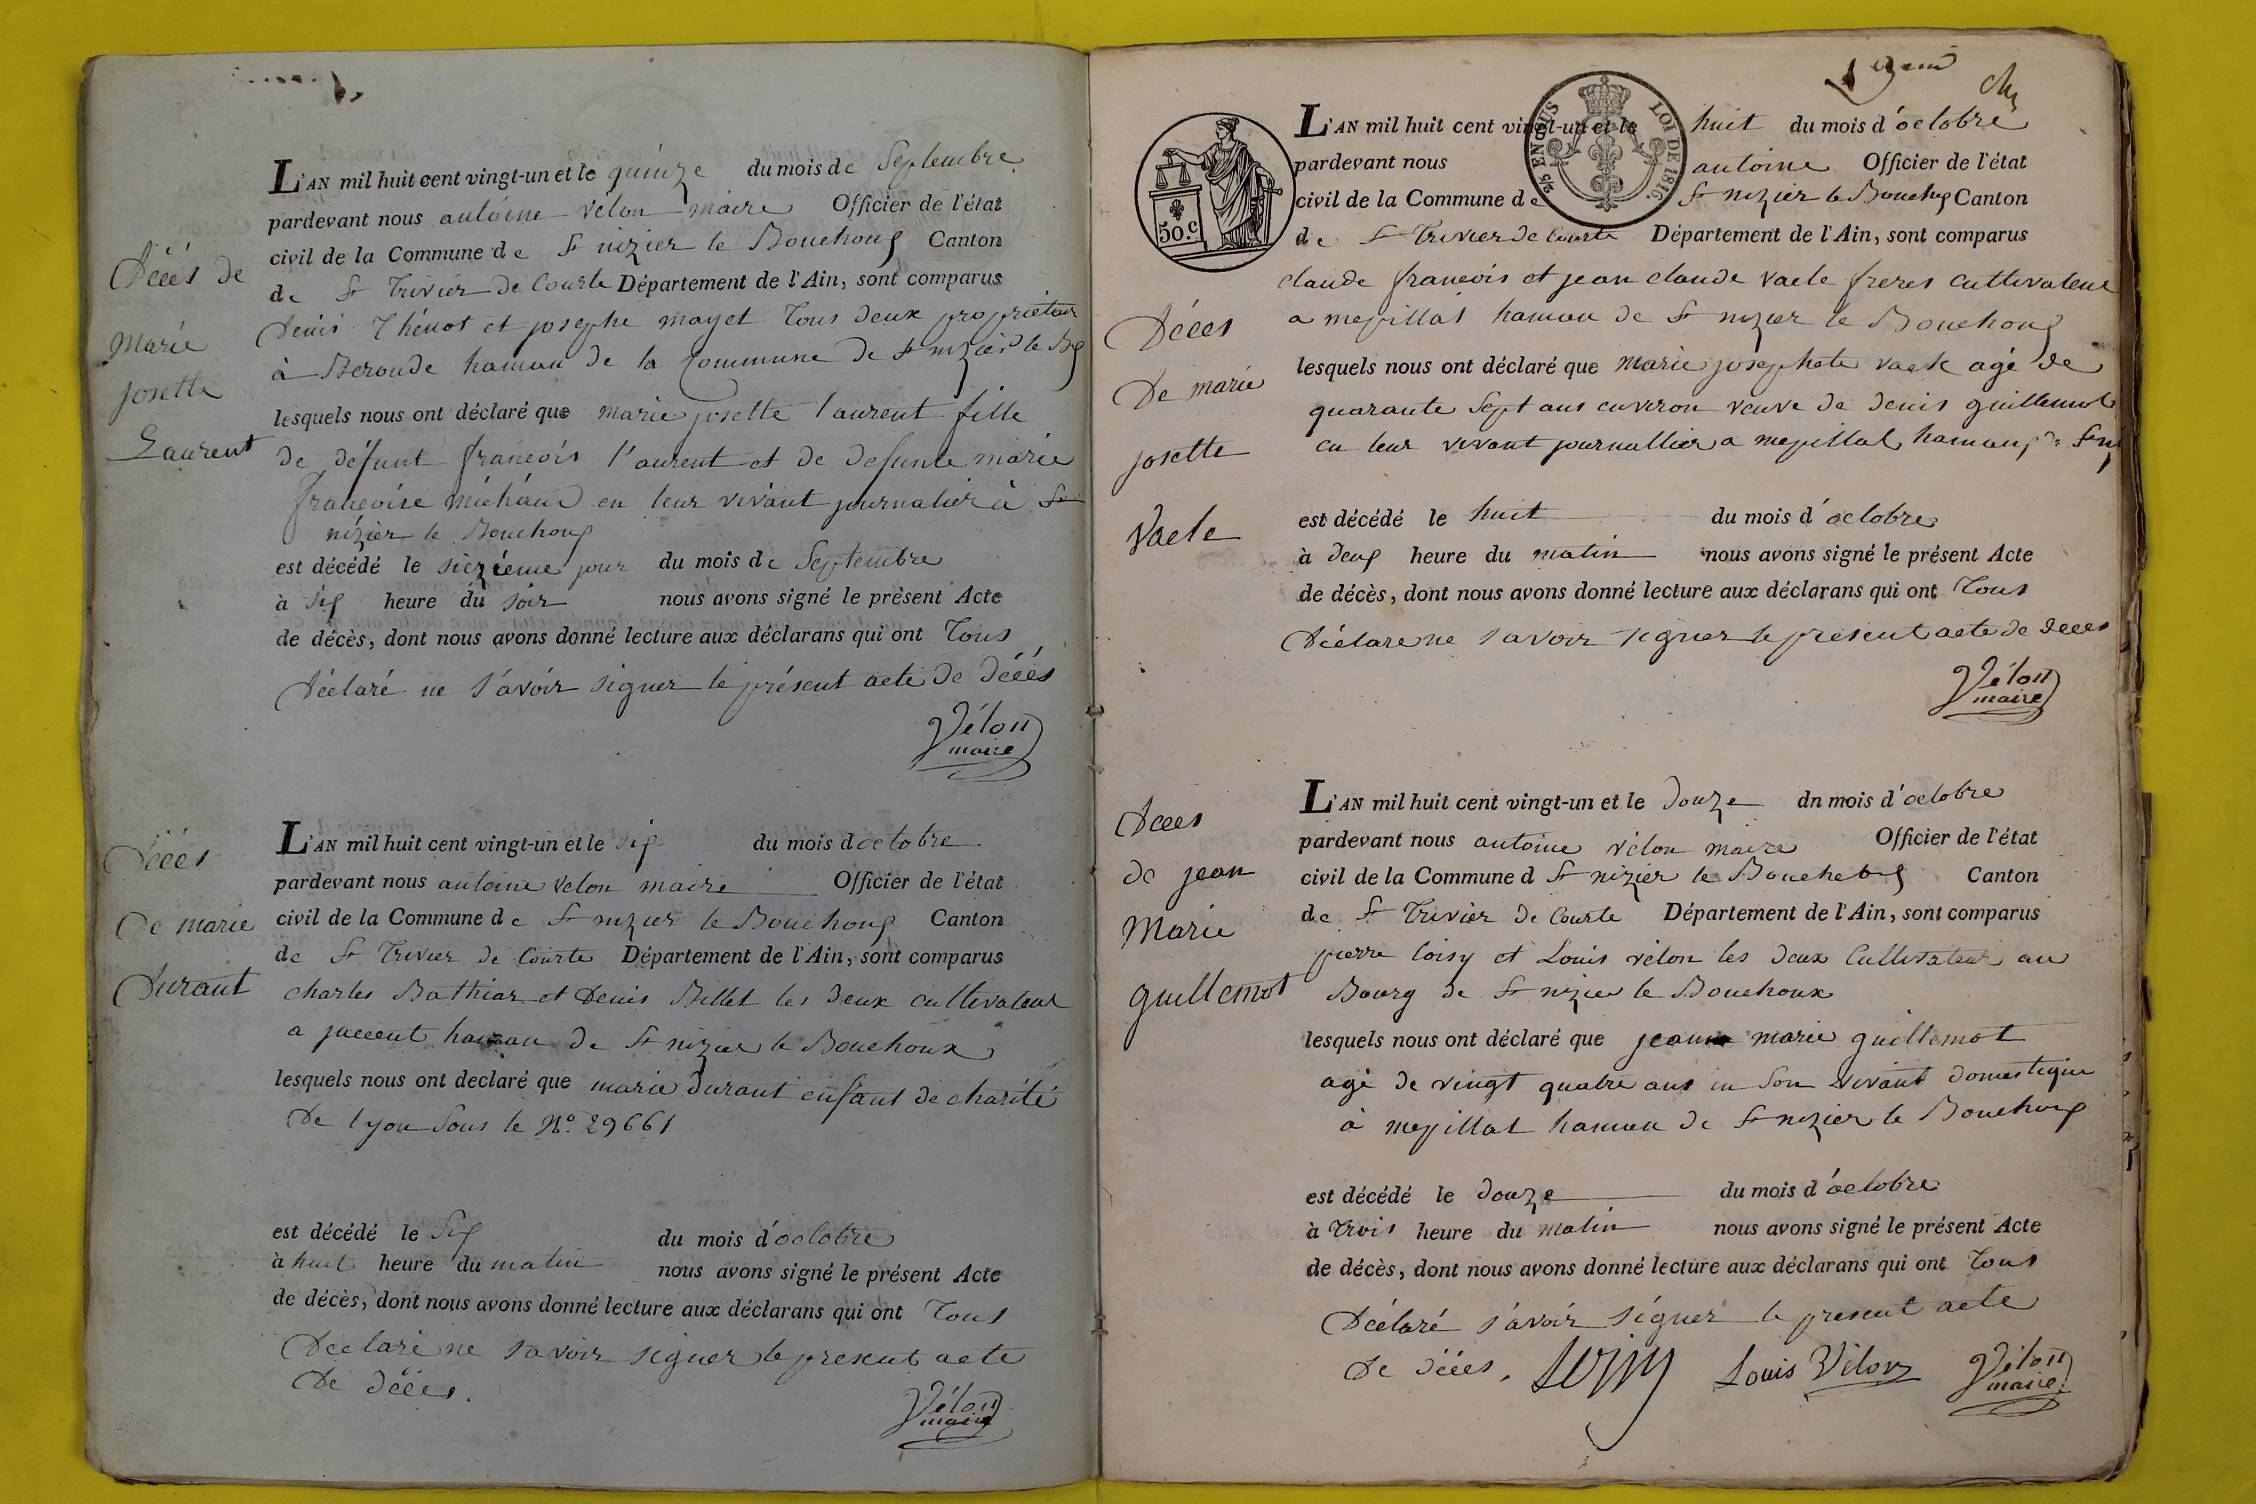 L'AN mil huit cent vingt-un et le quinze du mois de Septembre
pardevant nous antoine vélon maire Officier de l'état
civil de la Commune de St nizier le Bouchoux Canton
de St Trivier de Courte Département de l'Ain, sont comparus
Denis Thénot et josephe mayet Tous deux propriétair
à Beroude hamau de la Commune de St nizier le Bx
lesquels nous ont déclaré que marie josette laurent fille
de défunt françois l'aurent et de defunte marie
françoise michaud en leur vivant journalier à St
nizier le Bouchoux
est décédé le siezième jour du mois de Septembre
à six heure du soir nous avons signé le présent Acte
de décès, dont nous avons donné lecture aux déclarans qui ont Tous
Déclaré ne s'avoir signer le présent acte de décés
Vélon
maire
Décés de
Marie
josette
Laurent
L'AN mil huit cent vingt-un et le six du mois d octobre
pardevant nous antoine velon maire Officier de l'état
civil de la Commune de St nizier le Bouchoux Canton
de St Trivier de Courte Département de l'Ain, sont comparus
charles Bathias et Denis Billet les deux cultivateur
a juccent hamau de St nizier le Bouchoux
lesquels nous ont declaré que marie durant enfant de charité
De lyon sous le No. 29661
est décédé le Six du mois d'octobre
à huit heure du matin nous avons signé le présent Acte
de décès, dont nous avons donné lecture aux déclarans qui ont Tous
Declaré ne savoir signer le present acte
De décés.
Vélon
maire
Décés
De marie
Durant
50.c
LOI DE 1816.
L'AN mil huit cent vingt-un et le huit du mois d'octobre
pardevant nous antoine Officier de l'état
civil de la Commune de St nizier le Bouchx Canton
de St Trivier de Courte Département de l'Ain, sont comparus
claude françois et jean claude vacle freres cultivateur
a mepillat hamau de St nizier le Bouchoux
lesquels nous ont déclaré que marie josephete vacle agé de
quarante sept ans environ veuve de denis guillemot
en leur vivant journallier a mepillat hamau de St n
est décédé le huit du mois d'octobre
à deux heure du matin nous avons signé le présent Acte
de décès, dont nous avons donné lecture aux déclarans qui ont Tous
Déclare ne savoir signer le present acte de decés
Vélon
maire
Décès
De marie
josette
Vacle
L'AN mil huit cent vingt-un et le douze dn mois d'octobre
pardevant nous antoine vélon maire Officier de l'état
civil de la Commune d St nizier le Bouchoux Canton
de St Trivier de Courte Département de l'Ain, sont comparus
pierre loisy et Louis vélon les deux Cultivateur au
Bourg de St nizier le Bouchoux
lesquels nous ont déclaré que jean marie guillemot
agé de vingt quatre ans en son vivant domestique
à mepillat hamau de St nizier le Bouchoux
est décédé le douze du mois d'octobre
à trois heure du matin nous avons signé le présent Acte
de décès, dont nous avons donné lecture aux déclarans qui ont Tous
Déclaré s'avoir signer le present acte
De décés. Loisy Louis Vélon Vélon
maire
Décés
de jean
Marie
guillemot